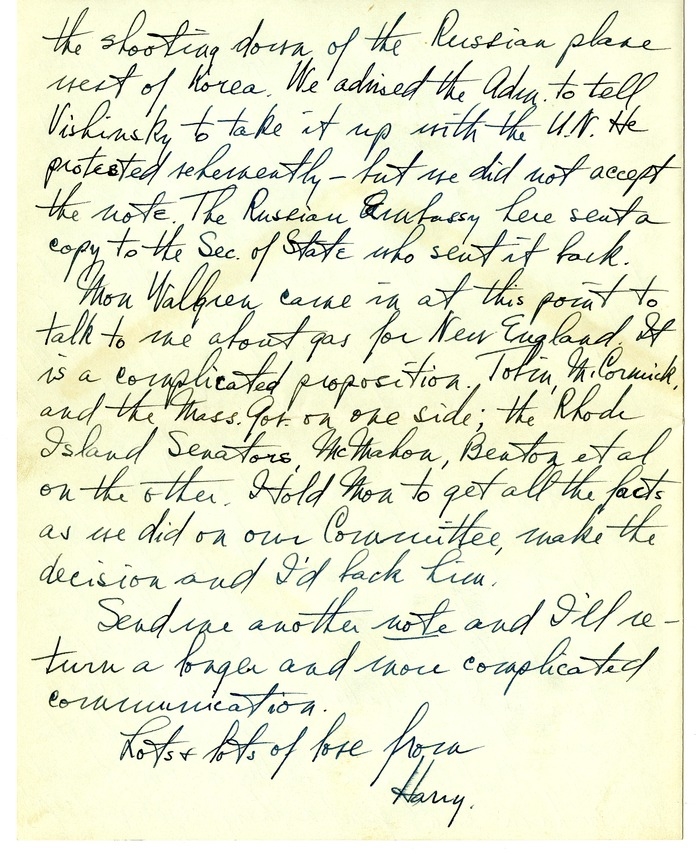 the shooting down of the Russian plane
west of Korea. We advised the Adm. to tell
Vishinsky to take it up with the U.N. He
protested vehemently – but we did not accept
the note. The Russian Embassy here sent a
copy to the Sec. of State who sent it back.
Mon Wallgren came in at this point to
talk to me about gas for New England. It
is a complicated proposition. Tobin, McCormick,
and the Mass. Gov. on one side; the Rhode
Island Senators, McMahon, Benton et al
on the other. I told Mon to get all the facts
as we did on our Committee, make the
decision and I'd back him.
Send me another note and I'll re-
turn a longer and more complicated
communication.
Lots & lots of love from
Harry.